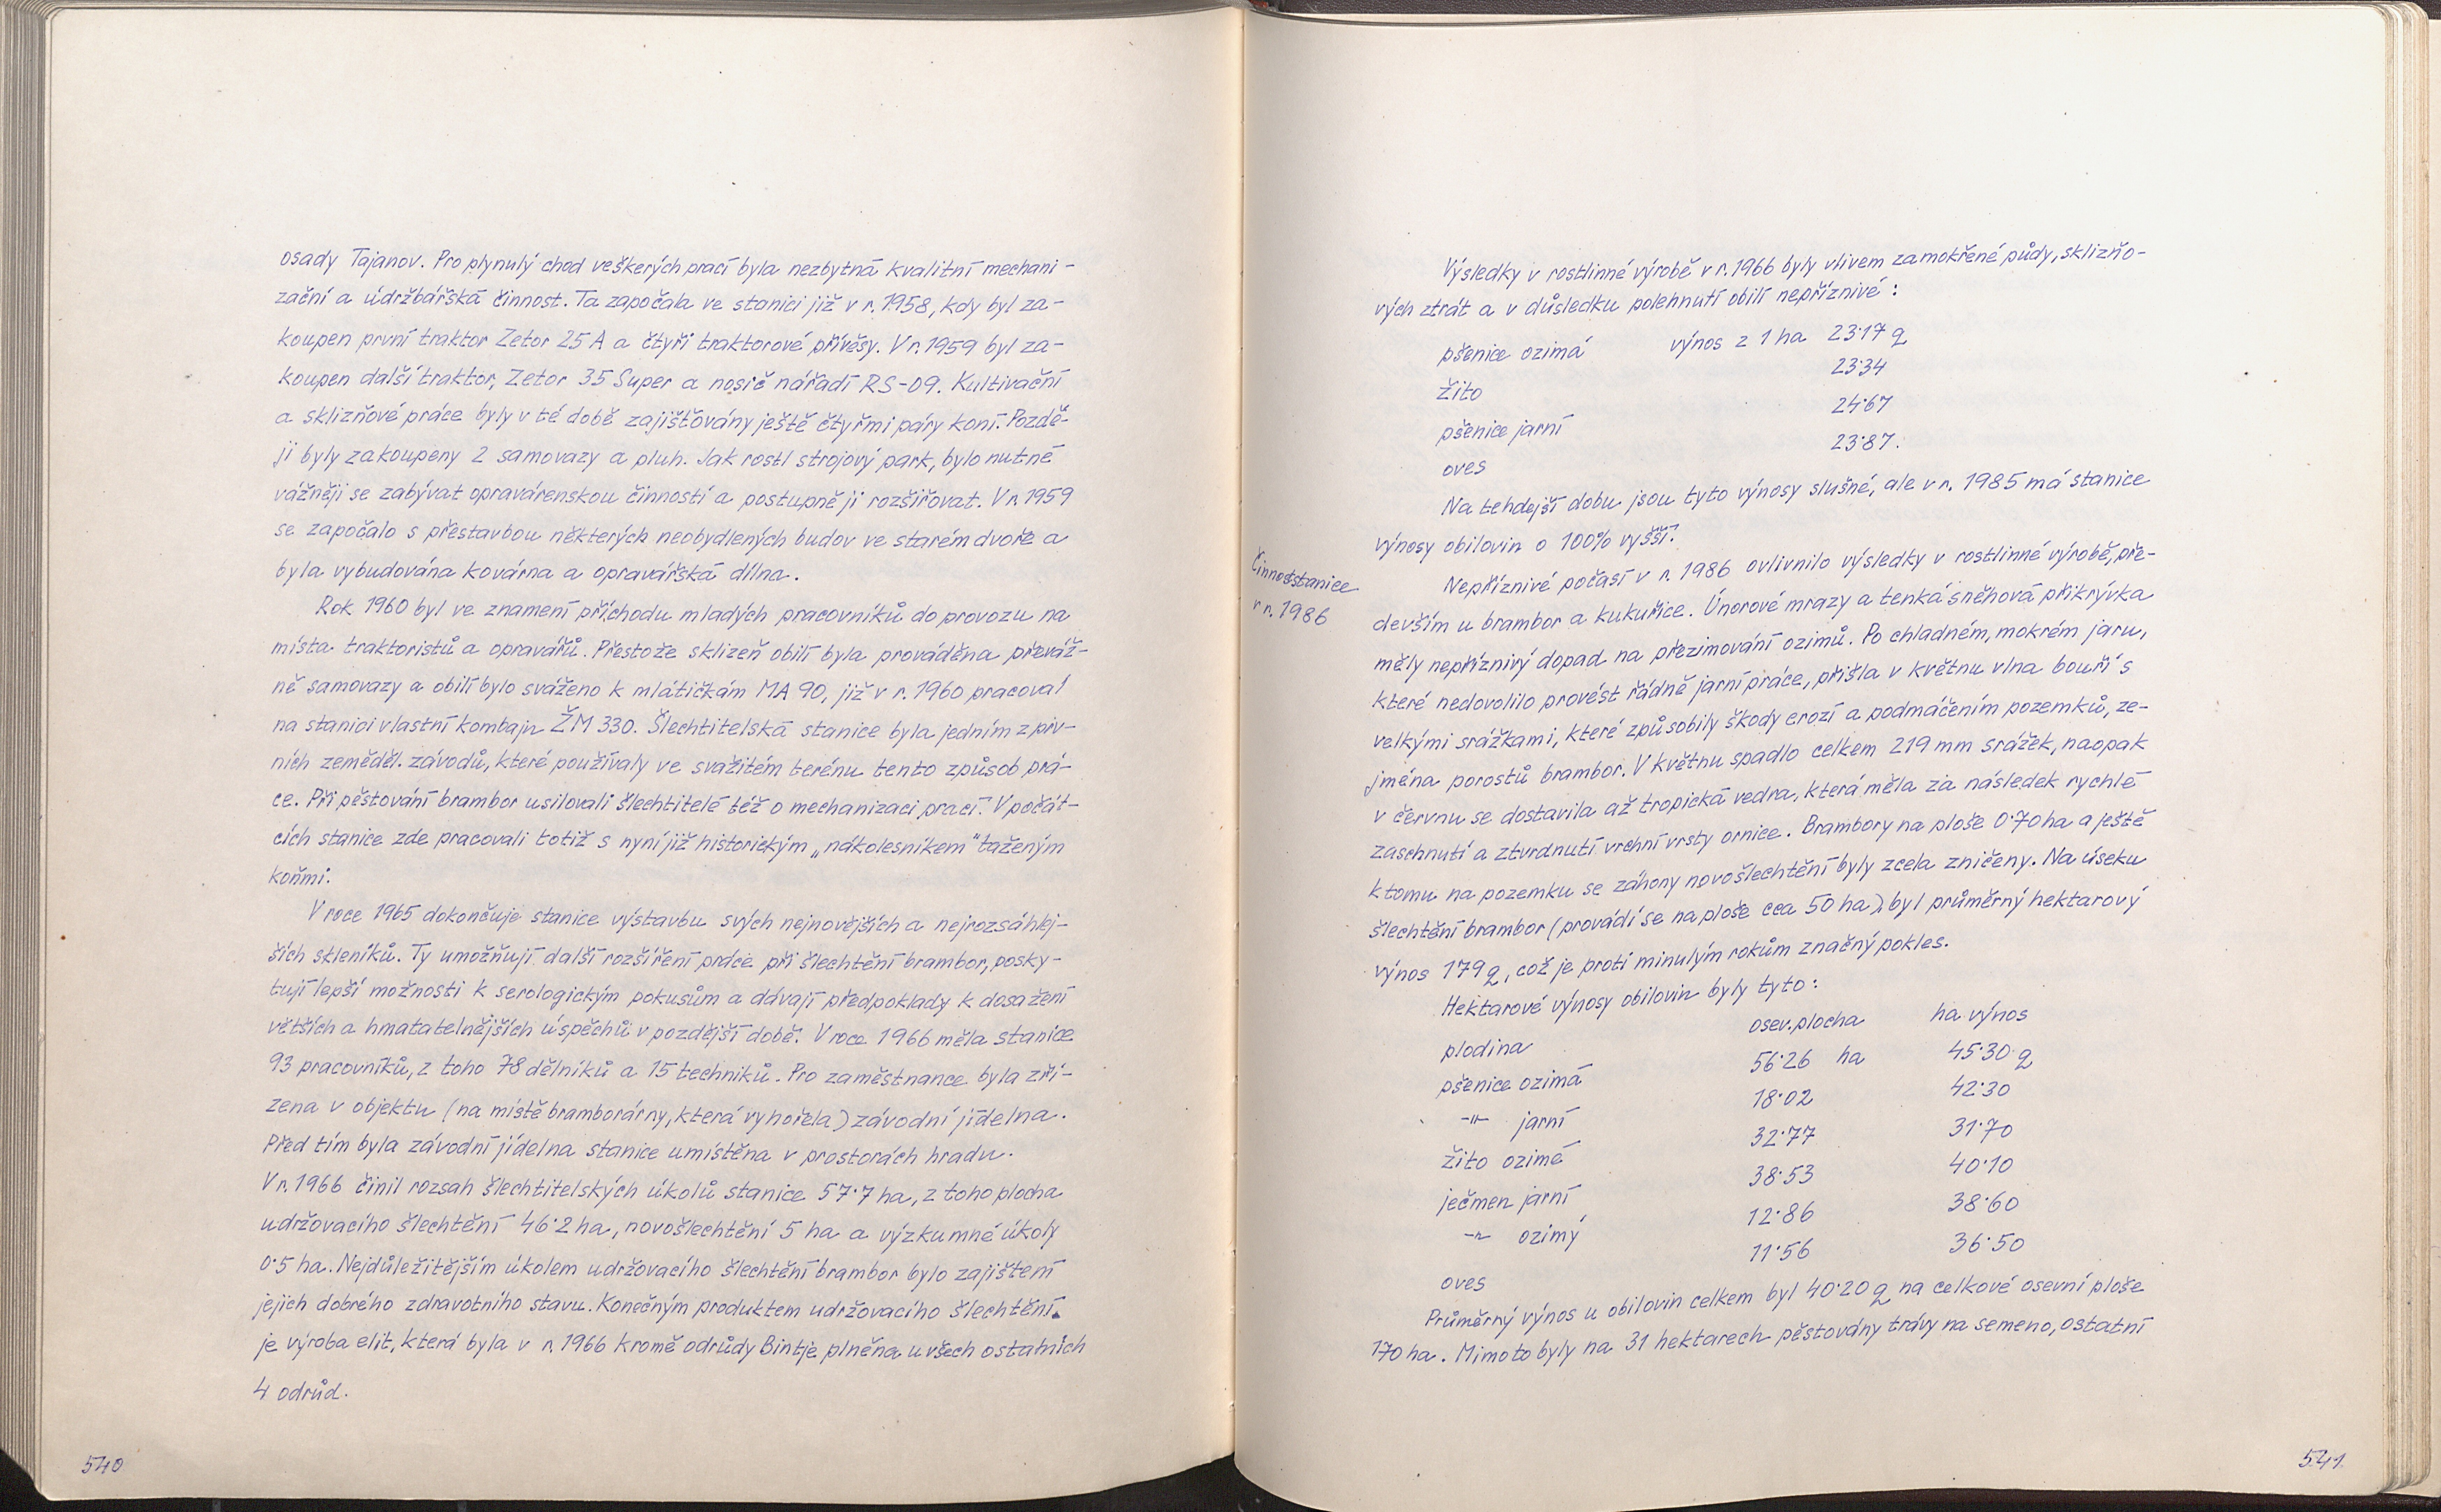 osady Tajanov. Pro plynulý chod veškerých prací byla nezbytná kvalitní mechani-
zační a údržbářská činnost. Ta započala ve stanici již v r. 1958, kdy byl za-
koupen první traktor Zetor 25 A a čtyři traktorové přívěsy. V r. 1959 byl za-
koupen další traktor, Zetor 35 Super a nosič nářadí RS-09. Kultivační
a sklizňové práce byly v té době zajišťovány ještě čtyřmi páry koní. Pozdě-
ji byly zakoupeny 2 samovazy a pluh. Jak rostl strojový park, bylo nutné
vážněji se zabývat opravárenskou činností a postupně ji rozšiřovat. V r. 1959
se započalo s přestavbou některých neobydlených budov ve starém dvoře a
byla vybudována kovárna a opravářská dílna.
Rok 1960 byl ve znamení příchodu mladých pracovníků do provozu na
místa traktoristů a opravářů. Přestože sklizeň obilí byla prováděna převáž-
ně samovazy a obilí bylo sváženo k mlátičkám MA 90, již v r. 1960 pracoval
na stanici vlastní kombajn ŽM 330. Šlechtitelská stanice byla jedním z prv-
ních zeměděl. závodů, které používaly ve svažitém terénu tento způsob prá-
ce. Při pěstování brambor usilovali šlechtitelé též o mechanizaci prací. V počát-
cích stanice zde pracovali totiž s nyní již historickým „nákolesníkem" taženým
koňmi.
V roce 1965 dokončuje stanice výstavbu svých nejnovějších a nejrozsáhlej-
ších skleníků. Ty umožňují další rozšíření práce při šlechtění brambor, posky-
tují lepší možnosti k serologickým pokusům a dávají předpoklady k dosažení
větších a hmatatelnějších úspěchů v pozdější době. V roce 1966 měla stanice
93 pracovníků, z toho 78 dělníků a 15 techniků. Pro zaměstnance byla zří-
zena v objektu (na místě bramborárny, která vyhořela) závodní jídelna.
Před tím byla závodní jídelna stanice umístěna v prostorách hradu.
V r. 1966 činil rozsah šlechtitelských úkolů stanice 57·7 ha, z toho plocha
udržovacího šlechtění 46·2 ha, novošlechtění 5 ha a výzkumné úkoly
0·5 ha. Nejdůležitějším úkolem udržovacího šlechtění brambor bylo zajištění
jejich dobrého zdravotního stavu. Konečným produktem udržovacího šlechtění
je výroba elit, která byla v r. 1966 kromě odrůdy Bintje plněna u všech ostatních
4 odrůd.
540
Výsledky v rostlinné výrobě v r. 1966 byly vlivem zamokřené půdy, sklizňo-
vých ztrát a v důsledku polehnutí obilí nepříznivé:
pšenice ozimá výnos z 1 ha 23·17 q
žito 23·34
pšenice jarní 24·67
oves 23·87.
Na tehdejší dobu jsou tyto výnosy slušné, ale v r. 1985 má stanice
výnosy obilovin o 100% vyšší.
Činnost stanice
v r. 1986
Nepříznivé počasí v r. 1986 ovlivnilo výsledky v rostlinné výrobě, pře-
devším u brambor a kukuřice. Únorové mrazy a tenká sněhová přikrývka
měly nepříznivý dopad na přezimování ozimů. Po chladném, mokrém jaru,
které nedovolilo provést řádně jarní práce, přišla v květnu vlna bouří s
velkými srážkami, které způsobily škody erozí a podmáčením pozemků, ze-
jména porostů brambor. V květnu spadlo celkem 219 mm srážek, naopak
v červnu se dostavila až tropická vedra, která měla za následek rychlé
zaschnutí a ztvrdnutí vrchní vrsty ornice. Brambory na ploše 0·70 ha a ještě
k tomu na pozemku se záhony novošlechtění byly zcela zničeny. Na úseku
šlechtění brambor (provádí se na ploše cca 50 ha), byl průměrný hektarový
výnos 179 q, což je proti minulým rokům značný pokles.
Hektarové výnosy obilovin byly tyto:
plodina osev. plocha ha výnos
pšenice ozimá 56·26 ha 45·30 q
-"- jarní 18·02 42·30
žito ozimé 32·77 31·70
ječmen jarní 38·53 40·10
-"- ozimý 12·86 38·60
oves 11·56 36·50
Průměrný výnos u obilovin celkem byl 40·20 q na celkové osevní ploše
170 ha. Mimo to byly na 31 hektarech pěstovány trávy na semeno, ostatní
541